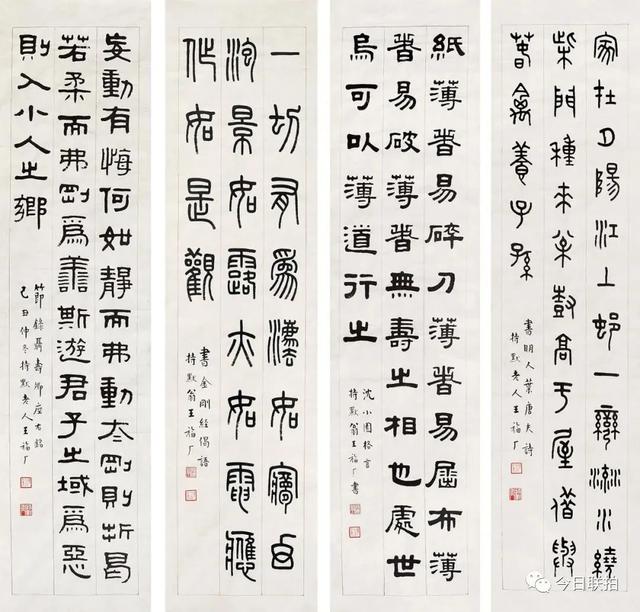 家住夕陽江上邨一彎流水繞
柴門種來松樹高于屋借與
春禽養子孫
書明人葉唐夫詩
持默老人王福厂
紙薄者易碎刀薄者易屈布薄
者易破薄者無壽之相也處世
烏可以薄道行之
沈小園格言
持默翁王福厂書
一切有為灋如夢幻
泡景如露亦如電應
作如是觀
書金剛經偈語
持默翁王福厂
妄動有悔何如靜而弗動太剛則折曷
若柔而弗剛為善斯遊君子之域為惡
則入小人之鄉
節錄聶壽卿座右銘
己丑仲冬持默老人王福厂
今日联拍